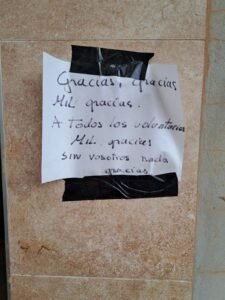 Gracias, gracias
Mil gracias.
A Todos los voluntarios
Mil gracias
sin vosotros nada
gracias